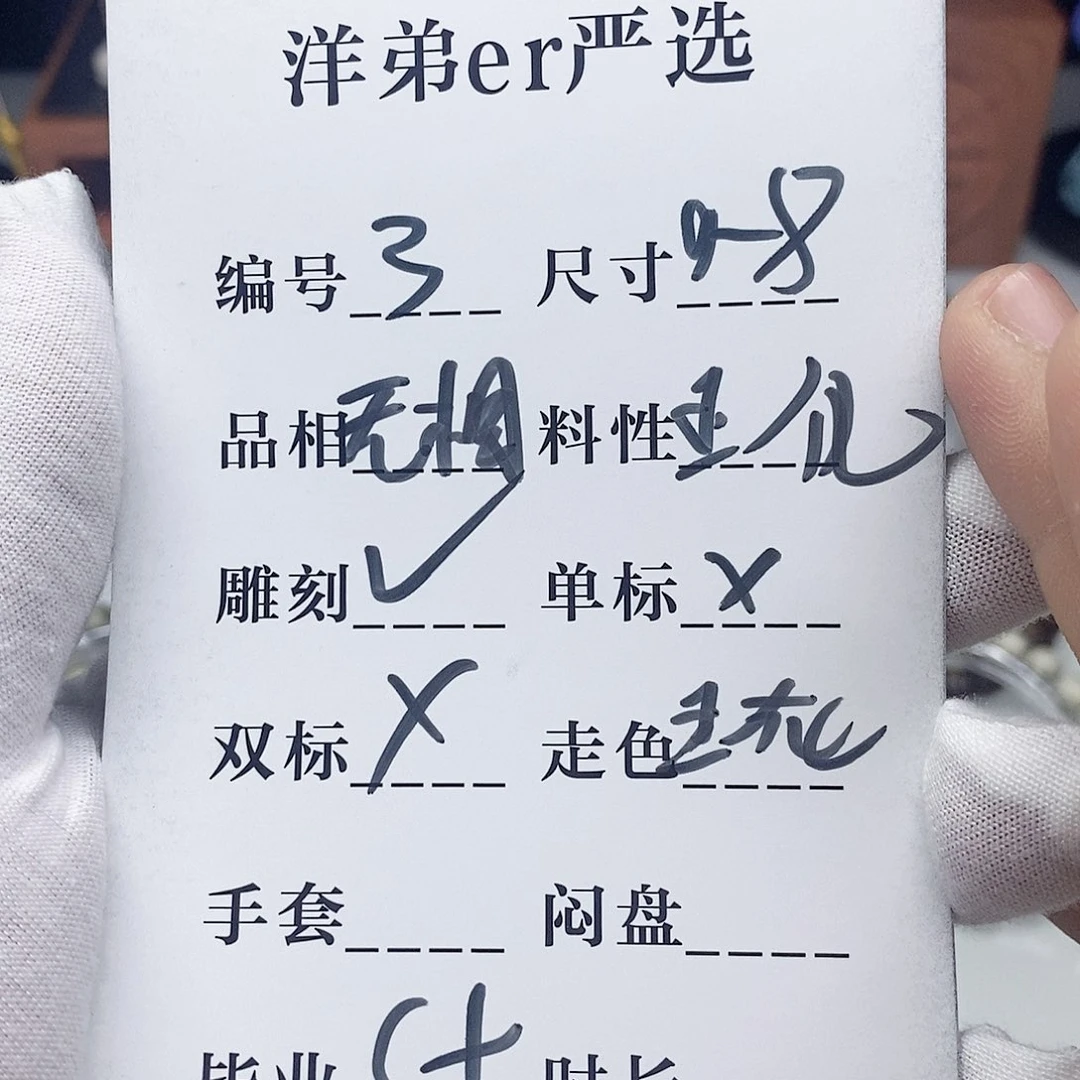 洋弟er严选
编号 3 尺寸 9-8
品相 无相 料性 玉化
雕刻 ✓ 单标 x
双标 x 走色 玉化
手套____ 闷盘____
毕业 时长